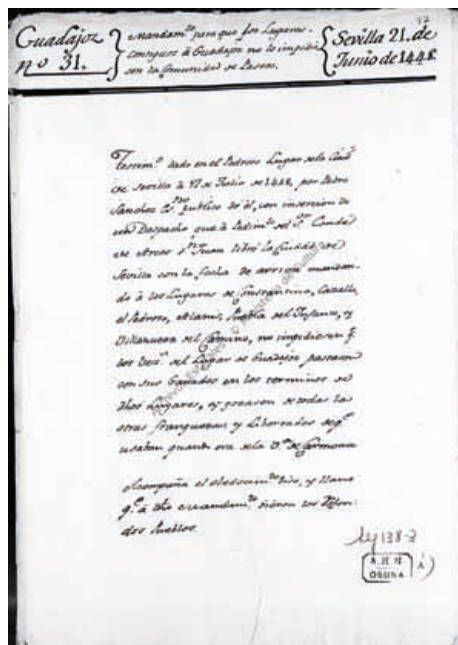 17
Guadajoz
nº 31.
Mandamto para que los Lugares
contiguos á Guadajoz no le impidiesen
la Comunidad de Pastos.
Sevilla 21. de
Junio de 1448.
Testimº dado en el Pedroso Lugar de la Ciud
de Sevilla á 17 de Julio de 1448, por Pedro
Sanchez esno publico de él, con insercion de
un Despacho que á Pedimto del Sr Conde
de Arcos Dn Juan libró la Ciudad de
Sevilla con la fecha de arriva mandan-
do á los Lugares de Constantina, Cazalla,
el Pedroso, Alanis, Puebla del Infante, y
Villanueva del Camino, no impidiesen q.
los Vezs del Lugar de Guadajoz pastasen
con sus Ganados en los terminos de
dhos Lugares, y gozasen de todas las
otras franquezas y Libertades de q.
usaban quando era de la Va de Carmona
Acompaña el obedecimto
q. á dho mandamto dieron los
dos Pueblos.
leg 138-3
A.H.N
OSUNA